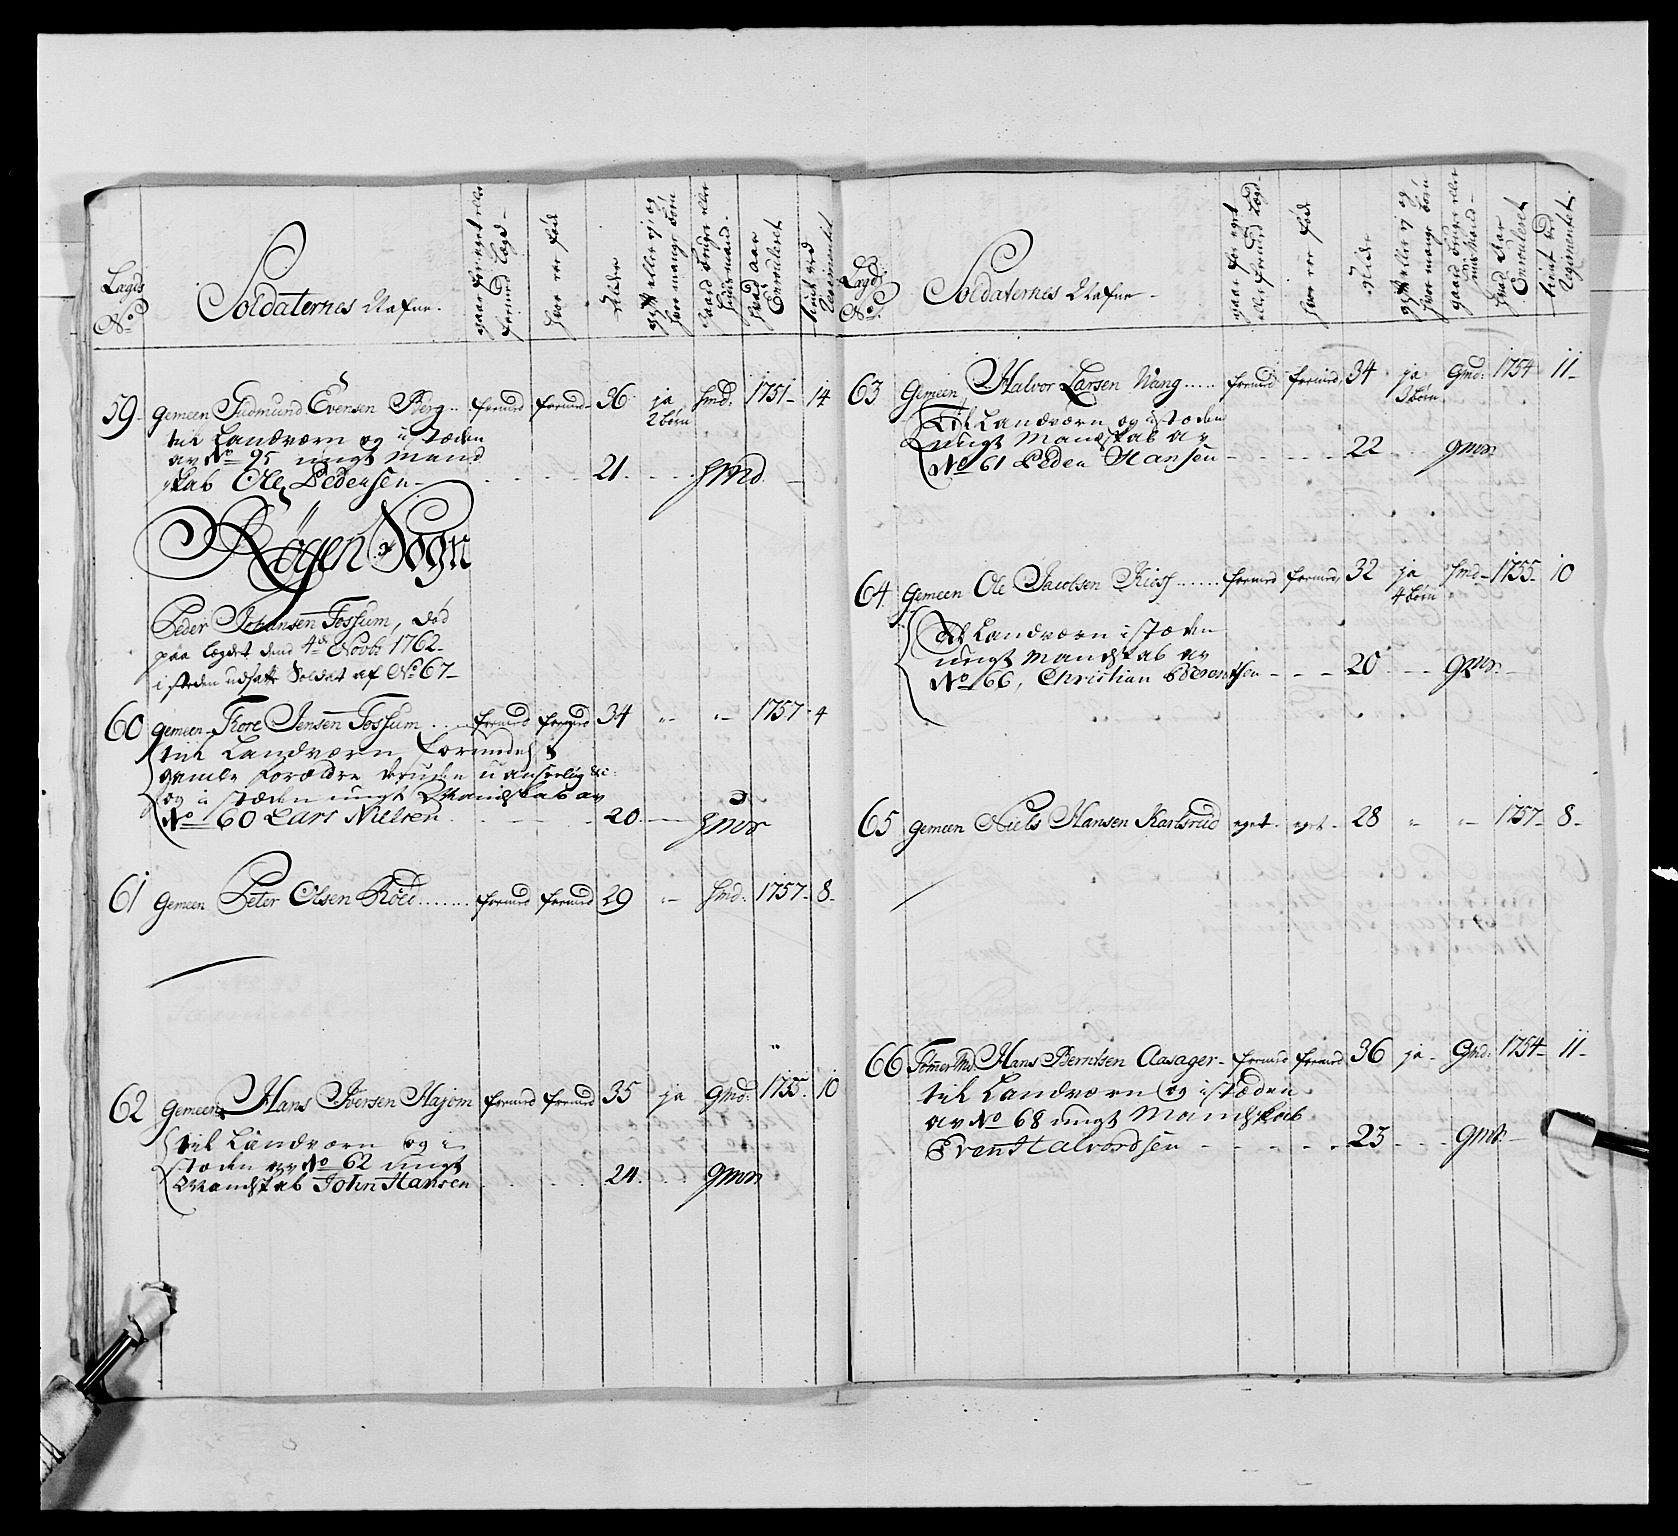 Lægds No
Soldaternes Nafne.
gaar for eget eller fremed Lægd
hvor er fød
Alder
gift eller ej og hvor mange børn
Gaard bruger eller huusmand
hvad aar Enroulleret
tient ved Regimentet
59 Gemeen Gudmund Evensen Berg fremed fremed 36 ja 2 børn hmd. 1751 14
til Landværn og i stæden
av No 95 ungt mand
skab Ole Pedersen 21 hmd
Røgen Sogn
Peder Johansen Fossum, død
paa Lægdet dend 4de Novbr 1762
i steden udsatt Soldat af No 67
60 gemeen Tore Jensen Fossum fremed fremed 34 1757 4
til Landværn
gamle forældre
og i stæden ungt Mandskab av
No 60 Lars Nielsen 20 gmsøn
61 Gemeen Peter Olsen Röed fremed fremed 29 hmd. 1757 8
62 Gemeen Hans Iversen Hajom fremed fremed 35 ja gmd. 1755 10
til Landværn og i
stæden av No 62 ungt
Mandskab John Hansen 24 gmsøn
Lægds No
Soldaternes Nafne
gaar for eget eller fremed Lægd
hvor er fød
Alder
gift eller ej og hvor mange børn
gaard bruger eller huusmand
hvad aar Enroulleret
tient ved Regimentet
63 Gemeen Halvor Larsen Wang fremed fremed 34 ja 3 børn Gmd. 1754 11
Til Landværn og i stæden
ungt Mandskab av
No 61 Peder Hansen 22 gmsøn
64 Gemeen Ole Jacobsen Kiøs fremed fremed 32 ja 4 børn hmd 1755 10
Til Landværn i stæden
ungt Mandskab av
No 66, Christian Berentsen 20 gmsøn
65 gemeen Niels Hansen Karlsrud eget eget 28 1757 8
66 Tømmer Md. Hans Berntsen Aasager fremed fremed 36 ja Gmd. 1754 11
til Landværn og i stæden
av No 68 ungt Mandskab
Even Halvordsen 23 gmsøn